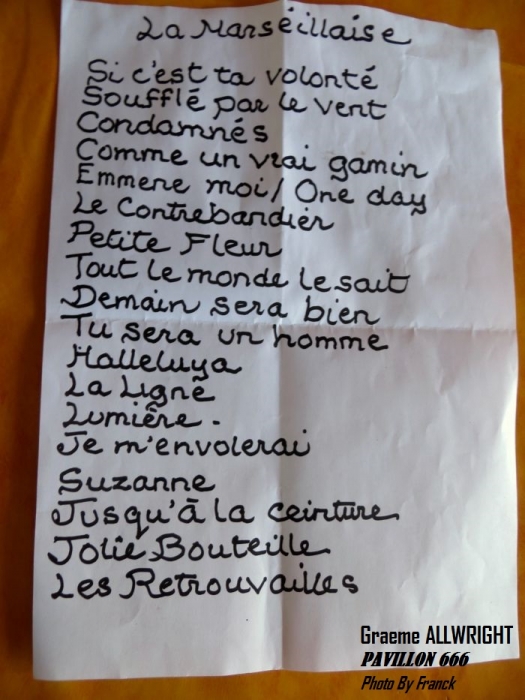 La Marseillaise
Si c'est ta volonté
Soufflé par le vent
Condamnés
Comme un vrai gamin
Emmene moi / One day
Le Contrebandier
Petite Fleur
Tout le monde le sait
Demain sera bien
Tu sera un homme
Halleluya
La Ligne
Lumière.
Je m'envolerai
Suzanne
Jusqu'à la ceinture
Jolie Bouteille
Les Retrouvailles
Graeme ALLWRIGHT
PAVILLON 666
Photo By Franck